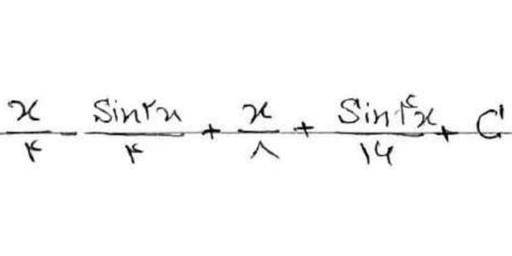 x/۴ - Sin۲x/۴ + x/۸ + Sin۴x/۱۶ + C